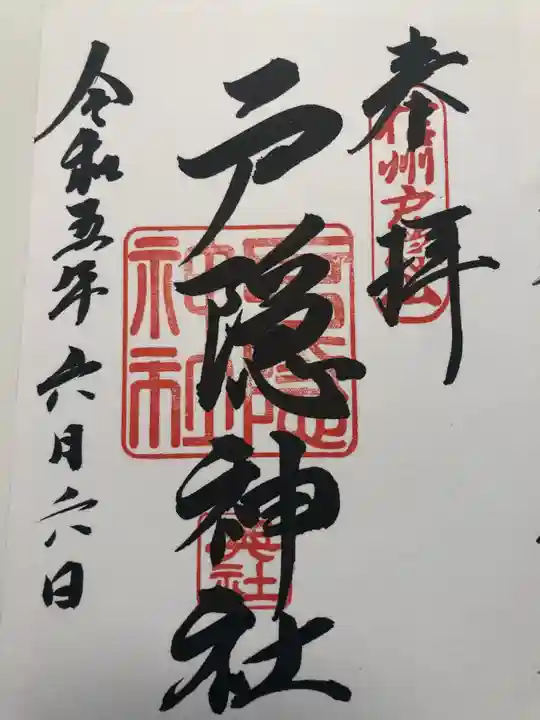 奉拝
信州戸隠山
戸隠神社
戸隠
神社
令和五年六月六日